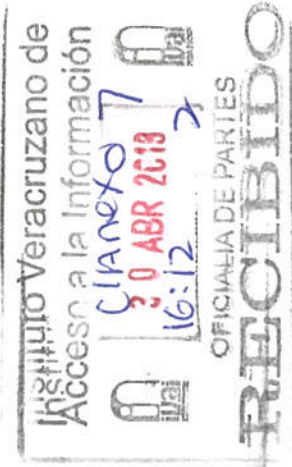 Instituto Veracruzano de
Acceso a la Información
C/Anexo 7
ivai
30 ABR 2013
ivai
16:12
OFICIALIA DE PARTES
RECIBIDO